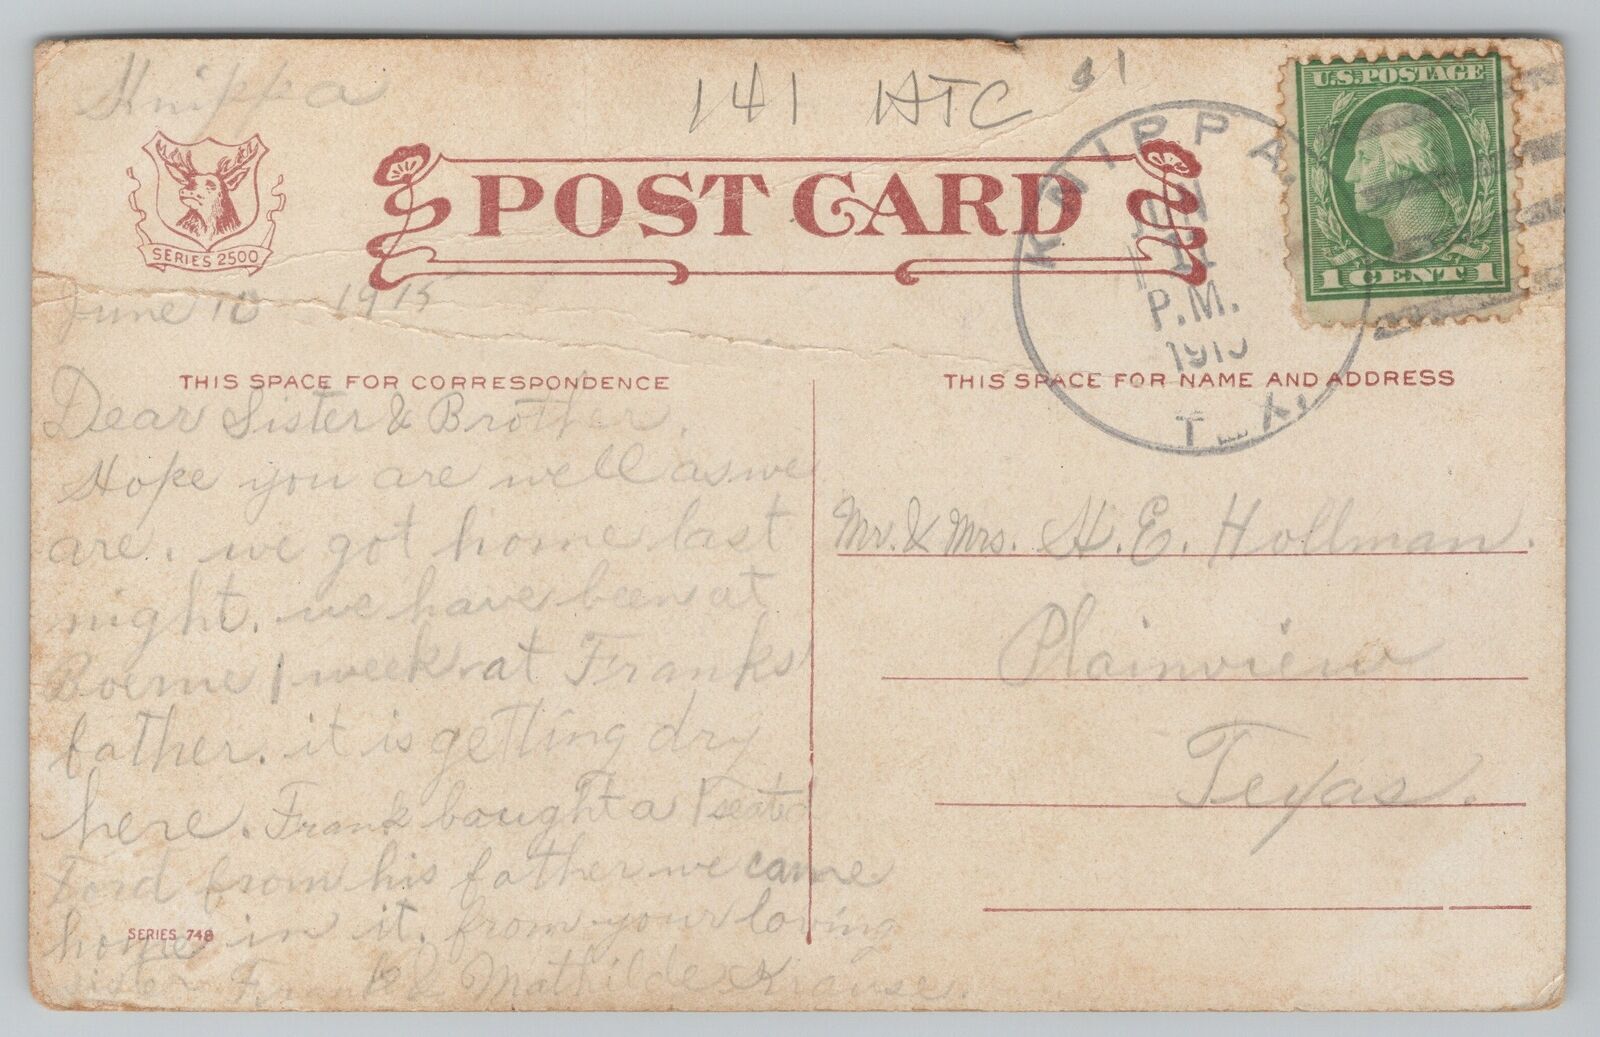 Knippa
141 ATC
$1
U.S. POSTAGE
1 CENT 1
KNIPPA.
JUN
11
P.M.
1915
TEX.
SERIES 2500
POST CARD
June 10 1915
THIS SPACE FOR CORRESPONDENCE
THIS SPACE FOR NAME AND ADDRESS
Dear Sister & Brother.
Hope you are well as we
are. we got home last
night. we have been at
Boerne 1 week at Franks
father. it is getting dry
here. Frank bought a 1 seated
Ford from his father we came
home in it. from your loving
sister Frank & Mathilde Krause.
SERIES 748
Mr. & Mrs. H. E. Hollman.
Plainview
Texas.